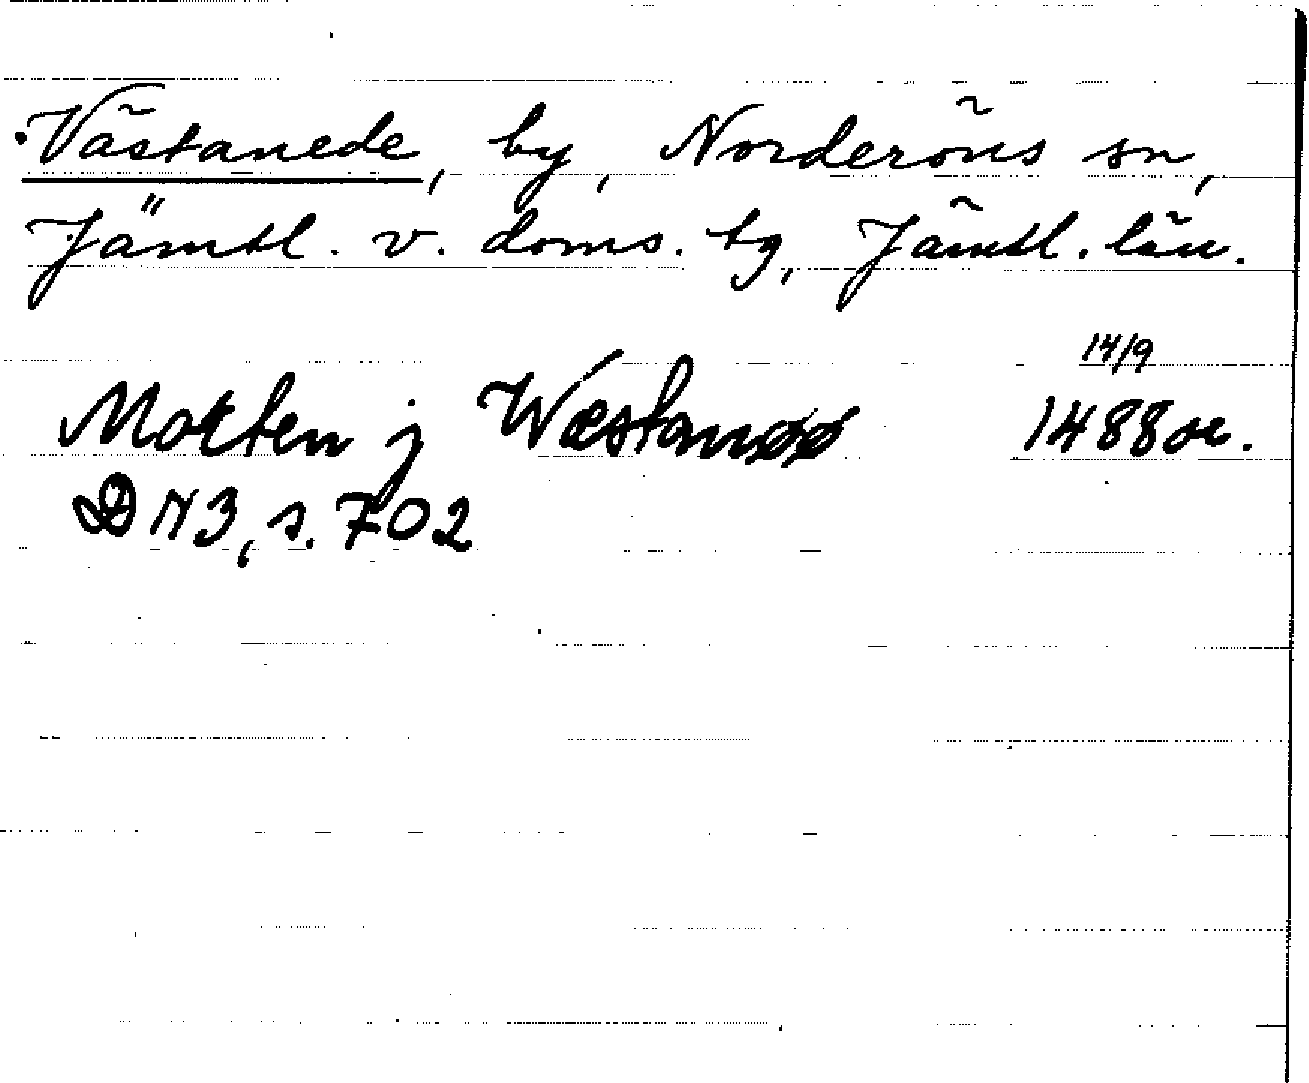 Västanede, by, Norderöns sn,
Jämtl. v. doms. tg, Jämtl. län.
14/9
Morten j Wæstanøø 1488 or.
DN 3, s. 702